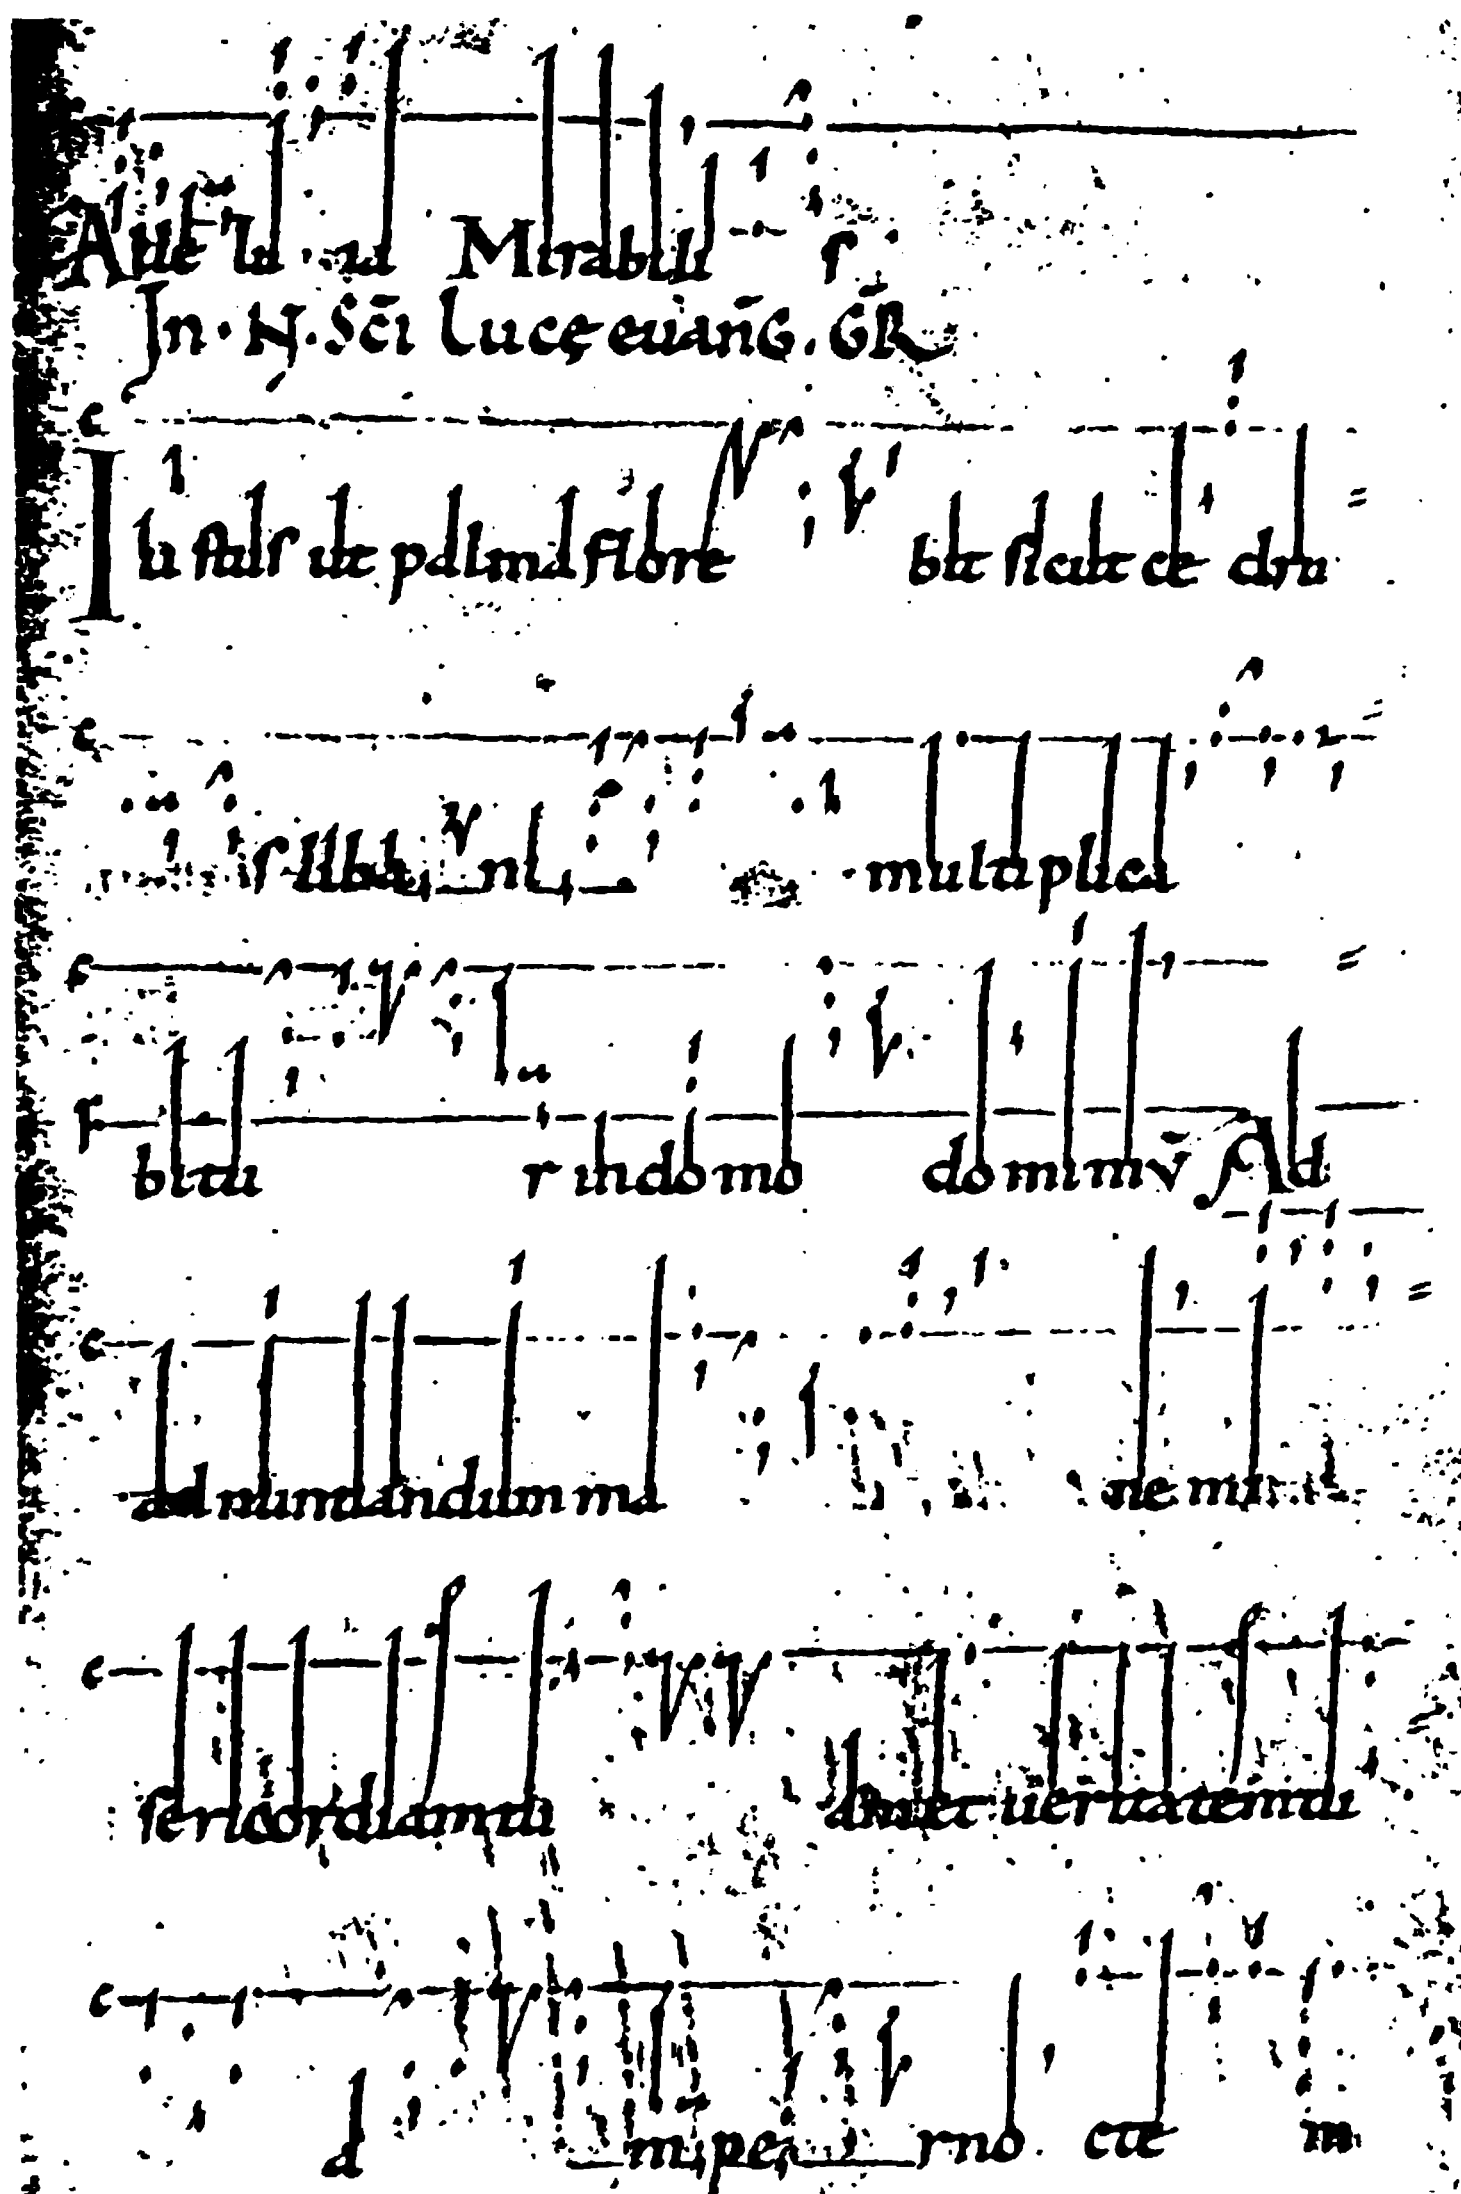 Alle lu ia Mirabili s
In · N · Sc̄i Lucę euanḡ. GR̄
Iustus ut palma flore bit sicut ce dru
s liba ni multiplica
bitu r in domo dominiv̄ Ad
ad nuntiandum ma ne mi
sericordiam tu am et ueritatem tu
a m per no cte m